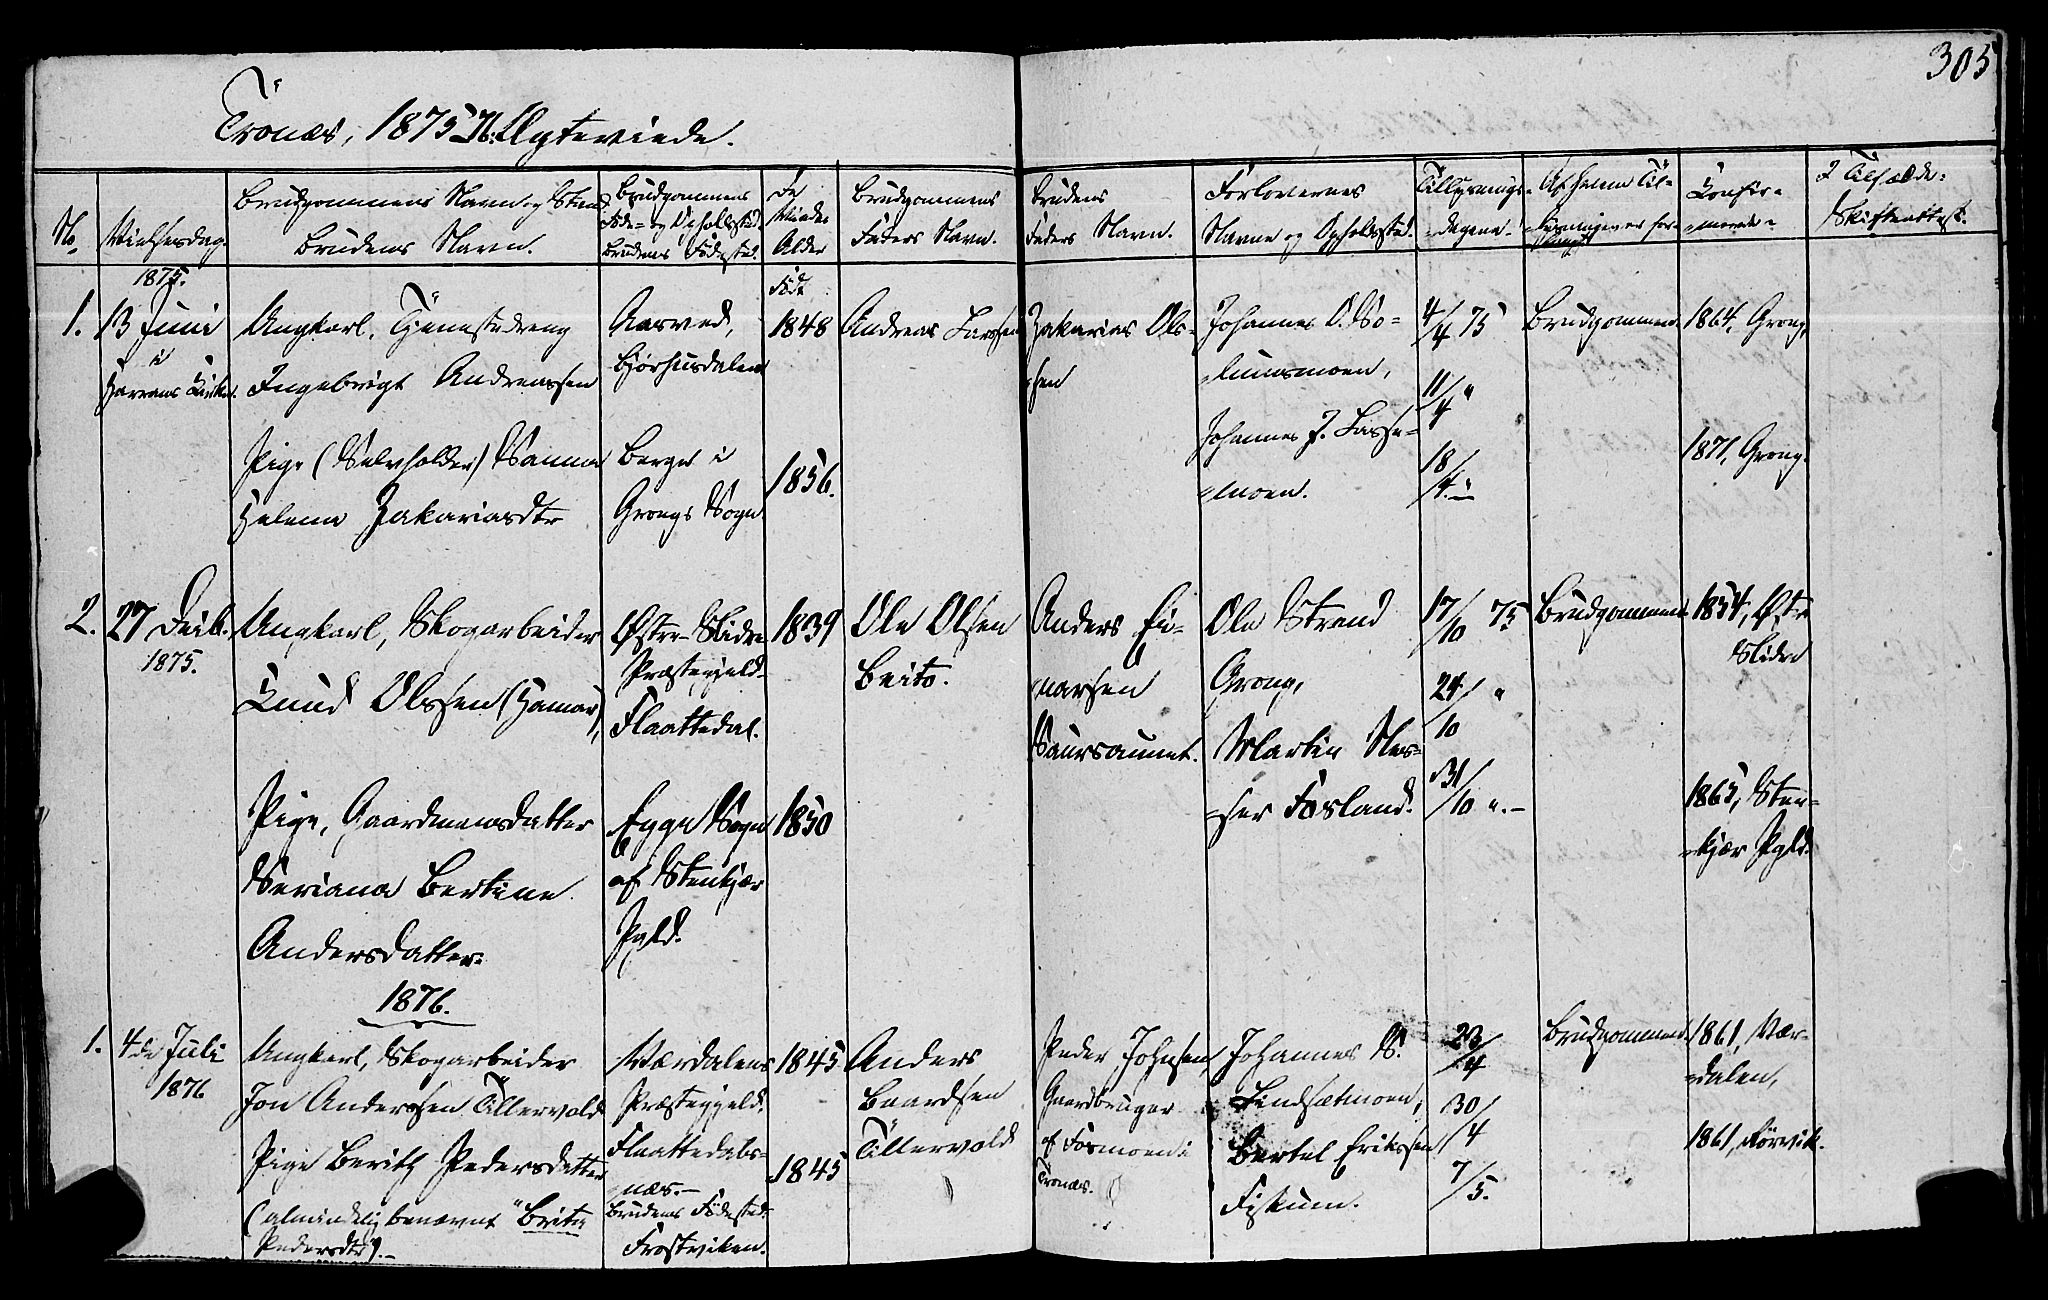 305
Trönæs, 1875-76. Ægteviede.
No
Vielsesdag.
Brudgommens Navn og Stand
Brudens Navn.
Brudgommens
Föde- og Opholdsted.
Brudens Födested.
De
Viedes
Alder
Brudgommens
Faders Navn.
Brudens
Faders Navn.
Forlovernes
Navne og Opholdssted.
Tillysnings-
-dagene.
Af hvem Til-
-lysningen er for-
-langt
Confir-
-merede
I Tilfælde:
Skifteattest.
1875.
1. 13 Juni
i
Harrans Kirke.
Ungkarl, Tjenestedreng
Ingebrigt Andreassen
Pige (Selvholder) Sanna
Helena Zakariasdtr
Aarved,
Bjørhusdalen
Berge i
Grongs Sogn
Födt
1848
1856.
Andreas Larssen
Zakarias Ols-
-sen
Johannes O. So-
-lumsmoen,
Johannes J. Lasse-
-moen.
4/4 75
11/4 "
18/4 "
Brudgommen
1864, Grong,
1871, Grong.
2. 27 Decb.
1875.
Ungkarl, Skogarbeider
Knud Olssen (Hamar),
Pige, Gaardmansdatter
Seriana Bertine
Andersdatter
Østre-Slidre
Præstegjeld-
Flaattedal.
Egge Sogn
af Stenkjær
Pgld.
1839
1850
Ole Olsen
Beito.
Anders Ei-
-narsen
Saursaunet.
Ole Strand
Grong,
Martin Nes-
-ser Fosland.
17/10 75
24/10 "
31/10 ".-
Brudgommen
1854, Østre
Slidre
1865, Sten-
-kjær Pgld.
1876.
1. 4de Juli
1876
Ungkarl, Skogarbeider
Jon Anderssen Tillervold
Pige Berith Pedersdatter
(almindelig benævnt "Brita
Pedersdtr").-
Værdalens
Præstegjeld.
Flaattedals-
-næs.-
Brudens Födested:
Frostviken.
1845
1845
Anders
Baardsen
Tillervold
Peder Johnsen,
Gaardbruger
af Fosmoen i
Trönæs.
Johannes S.
Lindsætmoen,
Bertel Erikssen
Fiskum.
23/4
30/4
7/5.
Brudgommen
1861, Vær-
-dalen,
1861, Nörvik.